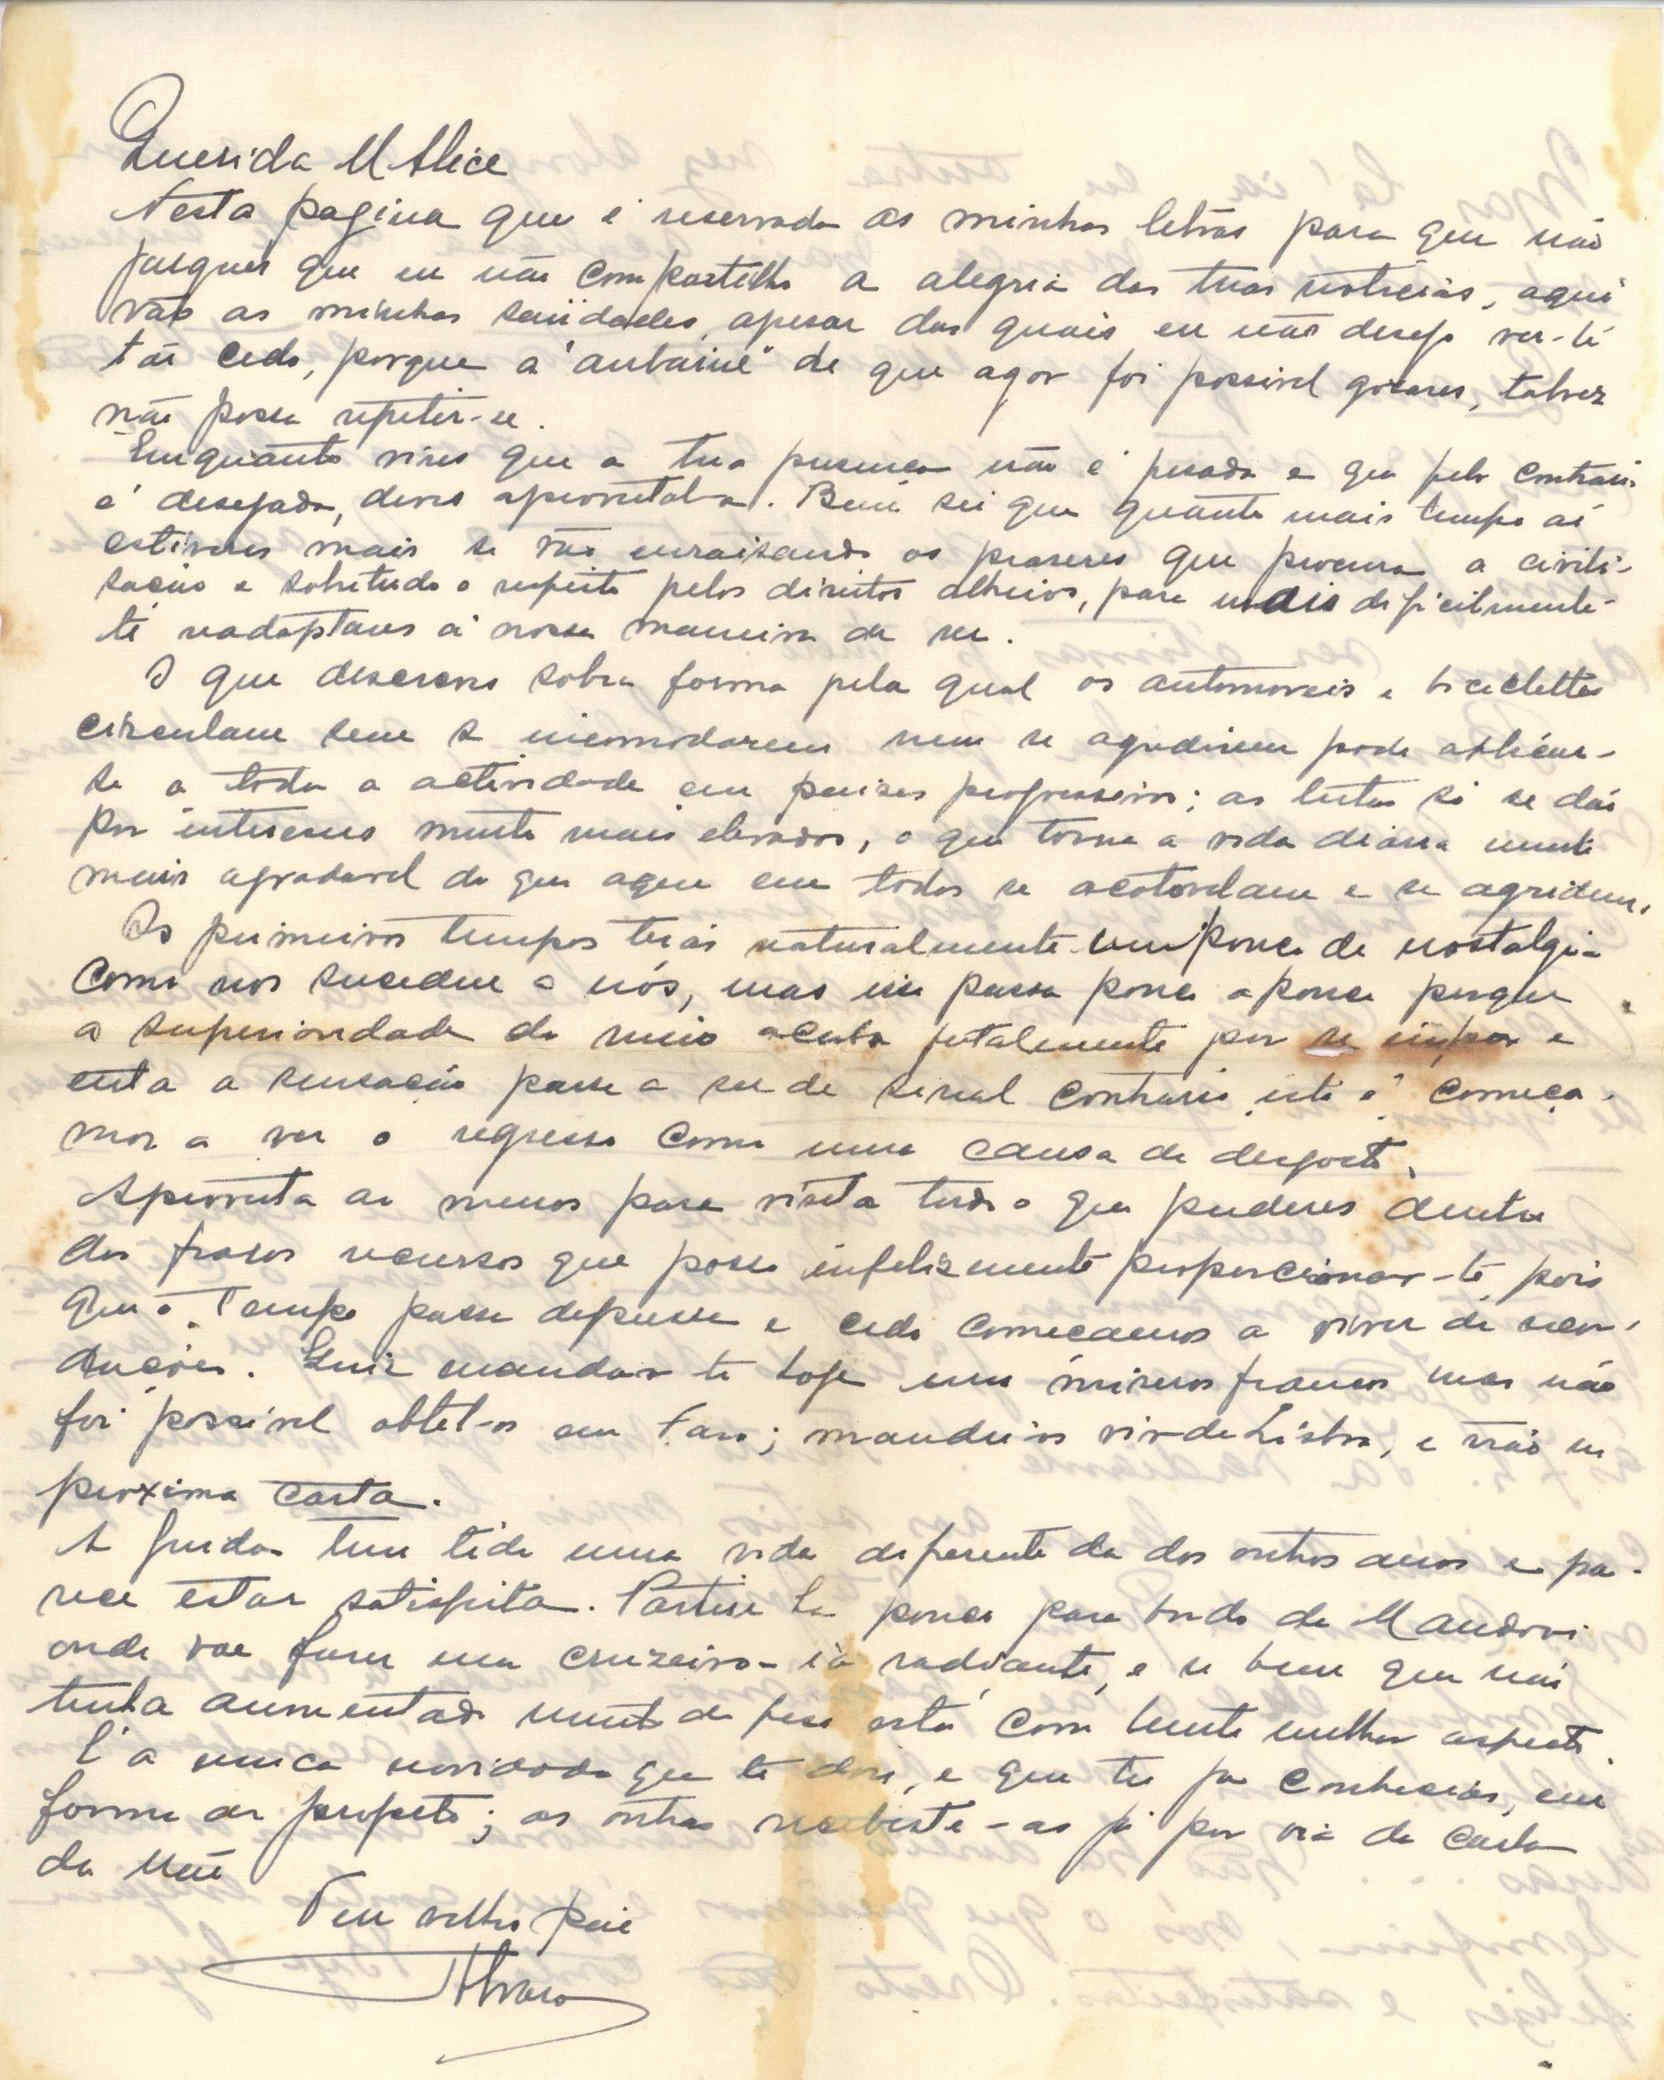 Querida M Alice
Nesta pagina que é reservada ás minhas letras para que não
julgues que eu não compartilho a alegria das tuas noticias, aqui
vão as minhas saüdades, apesar das quais eu não desejo ver-te
tão cedo, porque a "aubaine" de que agor foi possivel gosares, talvez
não possa repetir-se.
Emquanto vires que a tua presença não é pesada e que pelo contrario
é desejada, deves aproveital-a. Bem sei que quanto mais tempo aí
estiveres mais se vão enraisando os praseres que procura a civili-
sação e sobretudo o respeito pelos direitos alheios, para mais dificilmente
te readaptares á nossa maneira de ser.
O que descreves sobre forma pela qual os automoveis e bicicletes
circulam sem se incomodarem nem se agredirem pode aplicar-
se a toda a actividade em paises progressivos; as lutas só se dão
por interesses muito mais elevados, o que torna a vida diaria muito
mais agradavel do que aqui em todos se acotovelam e se agridem.
Os primeiros tempos terás naturalmente um pouco de nostalgia
como nos sucedeu a nós, mas isso passa pouco a pouco porque
a superioridade do meio acaba fatalmente por se impor e
então a sensação passa a ser de sinal contrario isto é começa-
mos a ver o regresso como uma causa de desgosto.
Aproveita ao menos para visitar tudo o que puderes dentro
dos fracos recursos que posso infelizmente proporcionar-te, pois
que o Tempo passa depressa e cedo começamos a viver de recor-
dações. Quiz mandar-te hoje uns miseros francos mas não
foi possivel obtel-os em Faro; mandei-os vir de Lisboa, e vão na
proxima carta.
A Guida tem tido uma vida diferente da dos outros anos e pa-
rece estar satisfeita. Partiu ha pouco para bordo do Mandovi
onde vae fazer um cruzeiro - ia radiante, e se bem que não
tenha aumentado muito de peso está com muito melhor aspecto.
É a unica novidade que te dou, e que tu ja conhecias, em
forma de projecto; as outras recebeste-as já por via da carta
da Mãe
Teu velho pai
Alvaro